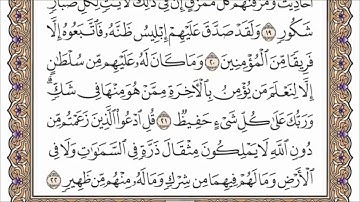 أَحَادِيثَ وَمَزَّقْنَٰهُمْ كُلَّ مُمَزَّقٍ إِنَّ فِى ذَٰلِكَ لَءَايَٰتٍ لِّكُلِّ صَبَّارٍ
شَكُورٍ ١٩ وَلَقَدْ صَدَّقَ عَلَيْهِمْ إِبْلِيسُ ظَنَّهُۥ فَٱتَّبَعُوهُ إِلَّا
فَرِيقًا مِّنَ ٱلْمُؤْمِنِينَ ٢٠ وَمَا كَانَ لَهُۥ عَلَيْهِم مِّن سُلْطَٰنٍ
إِلَّا لِنَعْلَمَ مَن يُؤْمِنُ بِٱلْءَاخِرَةِ مِمَّنْ هُوَ مِنْهَا فِى شَكٍّ
وَرَبُّكَ عَلَىٰ كُلِّ شَىْءٍ حَفِيظٌ ٢١ قُلِ ٱدْعُوا۟ ٱلَّذِينَ زَعَمْتُم مِّن
دُونِ ٱللَّهِ لَا يَمْلِكُونَ مِثْقَالَ ذَرَّةٍ فِى ٱلسَّمَٰوَٰتِ وَلَا فِى
ٱلْأَرْضِ وَمَا لَهُمْ فِيهِمَا مِن شِرْكٍ وَمَا لَهُۥ مِنْهُم مِّن ظَهِيرٍ ٢٢